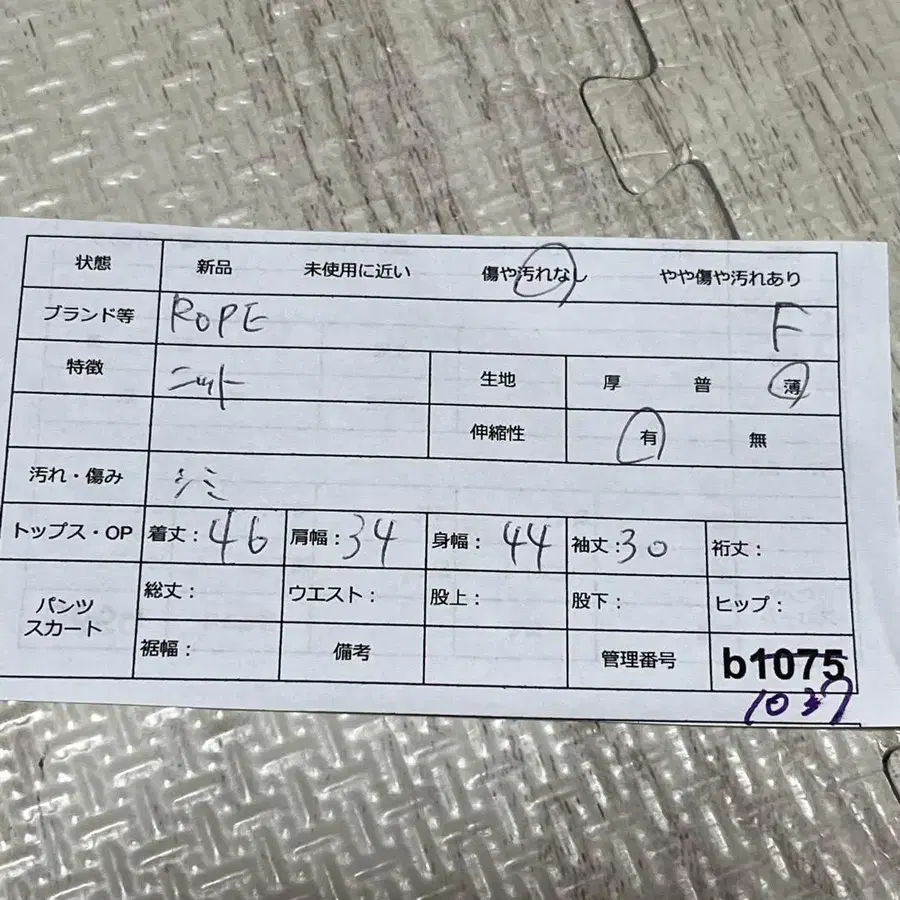 状態 新品 未使用に近い 傷や汚れなし やや傷や汚れあり
ブランド等 ROPE F
特徴 ニット 生地 厚 普 薄
伸縮性 有 無
汚れ・傷み シミ
トップス・OP 着丈:46 肩幅:34 身幅:44 袖丈:30 裄丈:
パンツ スカート 総丈: ウエスト: 股上: 股下: ヒップ:
裾幅: 備考 管理番号 b1075
1037